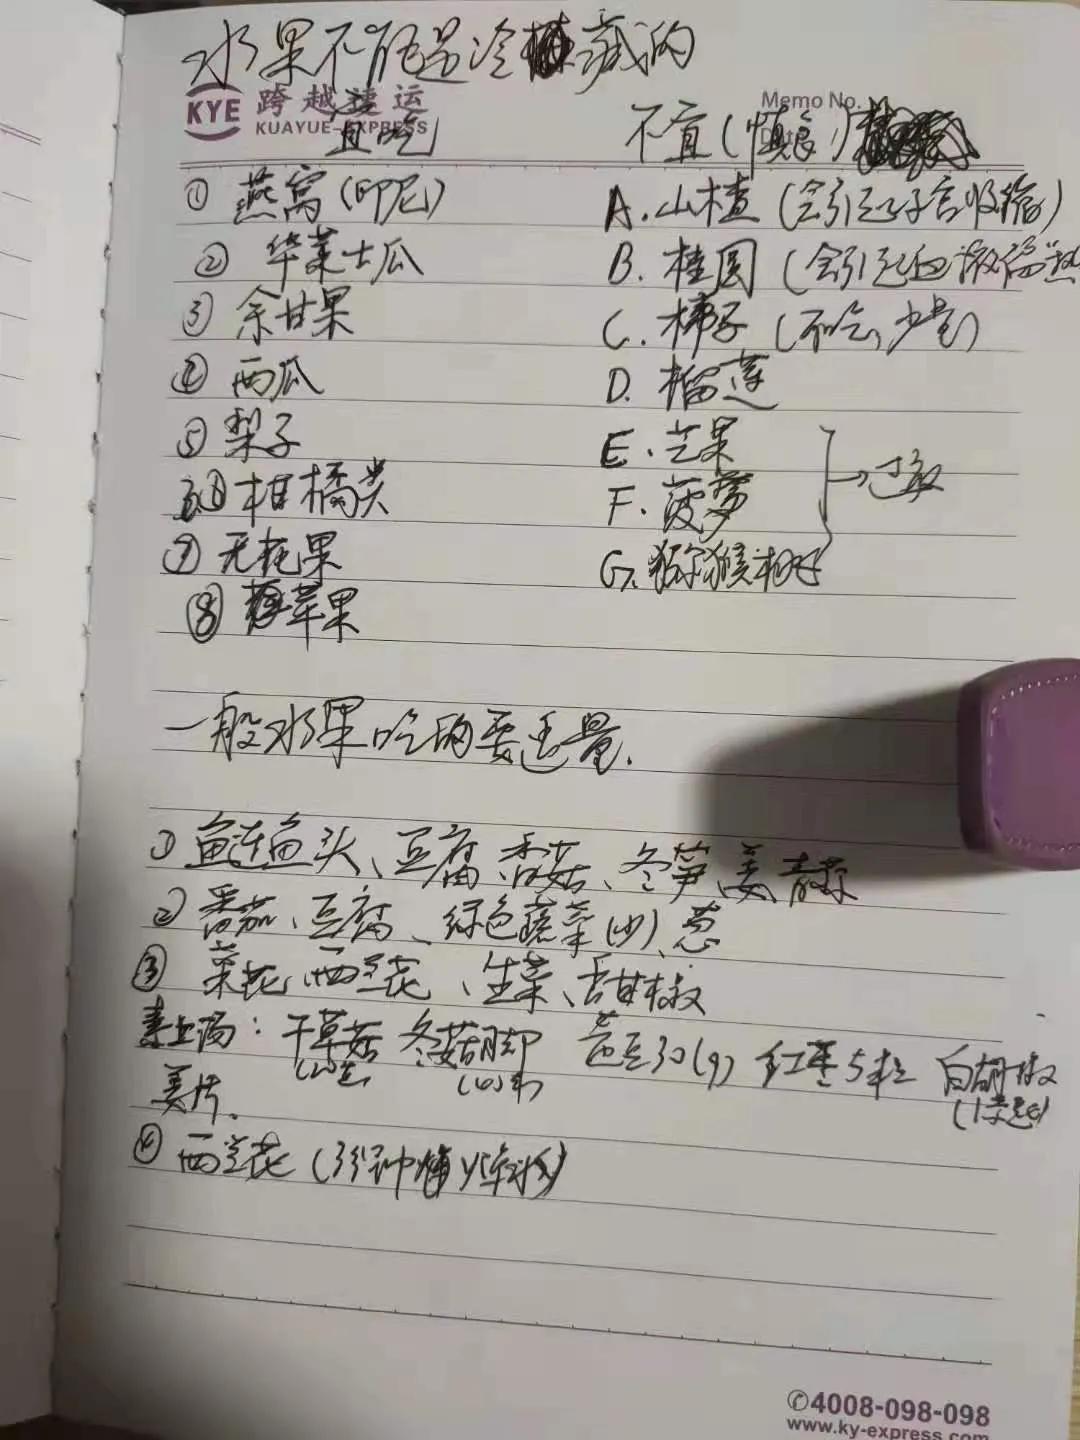 水果不能是冷藏的
KYE 跨越速运
KUAYUE-EXPRESS
Memo No.
宜吃 不宜(慎食)
① 燕窝(印尼) A.山楂(会引起子宫收缩)
② 华莱士瓜 B.桂圆(会引起血液偏热
③ 余甘果 C.柿子(不吃,少量)
④ 西瓜 D.榴莲
⑤ 梨子 E.芒果
柑橘类 F.菠萝 →过敏
⑦ 无花果 G.猕猴桃
⑧ 苹果
一般水果吃的要适量.
① 鲢鱼头、豆腐、香菇、冬笋、姜、青蒜
② 番茄、豆腐、绿色蔬菜(少)、葱
③ 菜花、西兰花、生菜、甜椒
素上汤:干草菇 冬菇脚 黄豆30(g) 红枣5粒 白胡椒
姜片.
④ 西兰花(3分钟
✆4008-098-098
www.ky-express.com